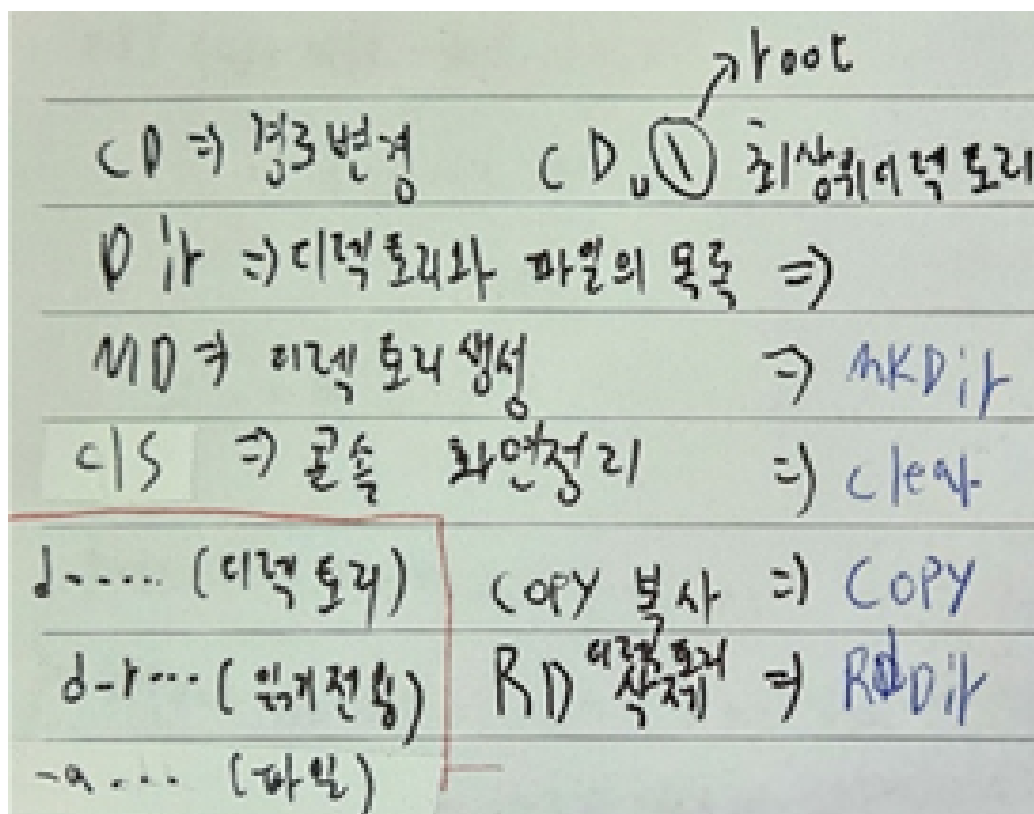 root
CD => 경로변경 CD␣\ 최상위디렉토리
Dir => 디렉토리와 파일의 목록 =>
MD => 디렉토리 생성 => MKDir
cls => 콘솔 화면정리 => clear
d----- (디렉토리) COPY 복사 => COPY
d-r--- (읽기전용) RD 디렉토리 삭제 => RdDir
-a---- (파일)